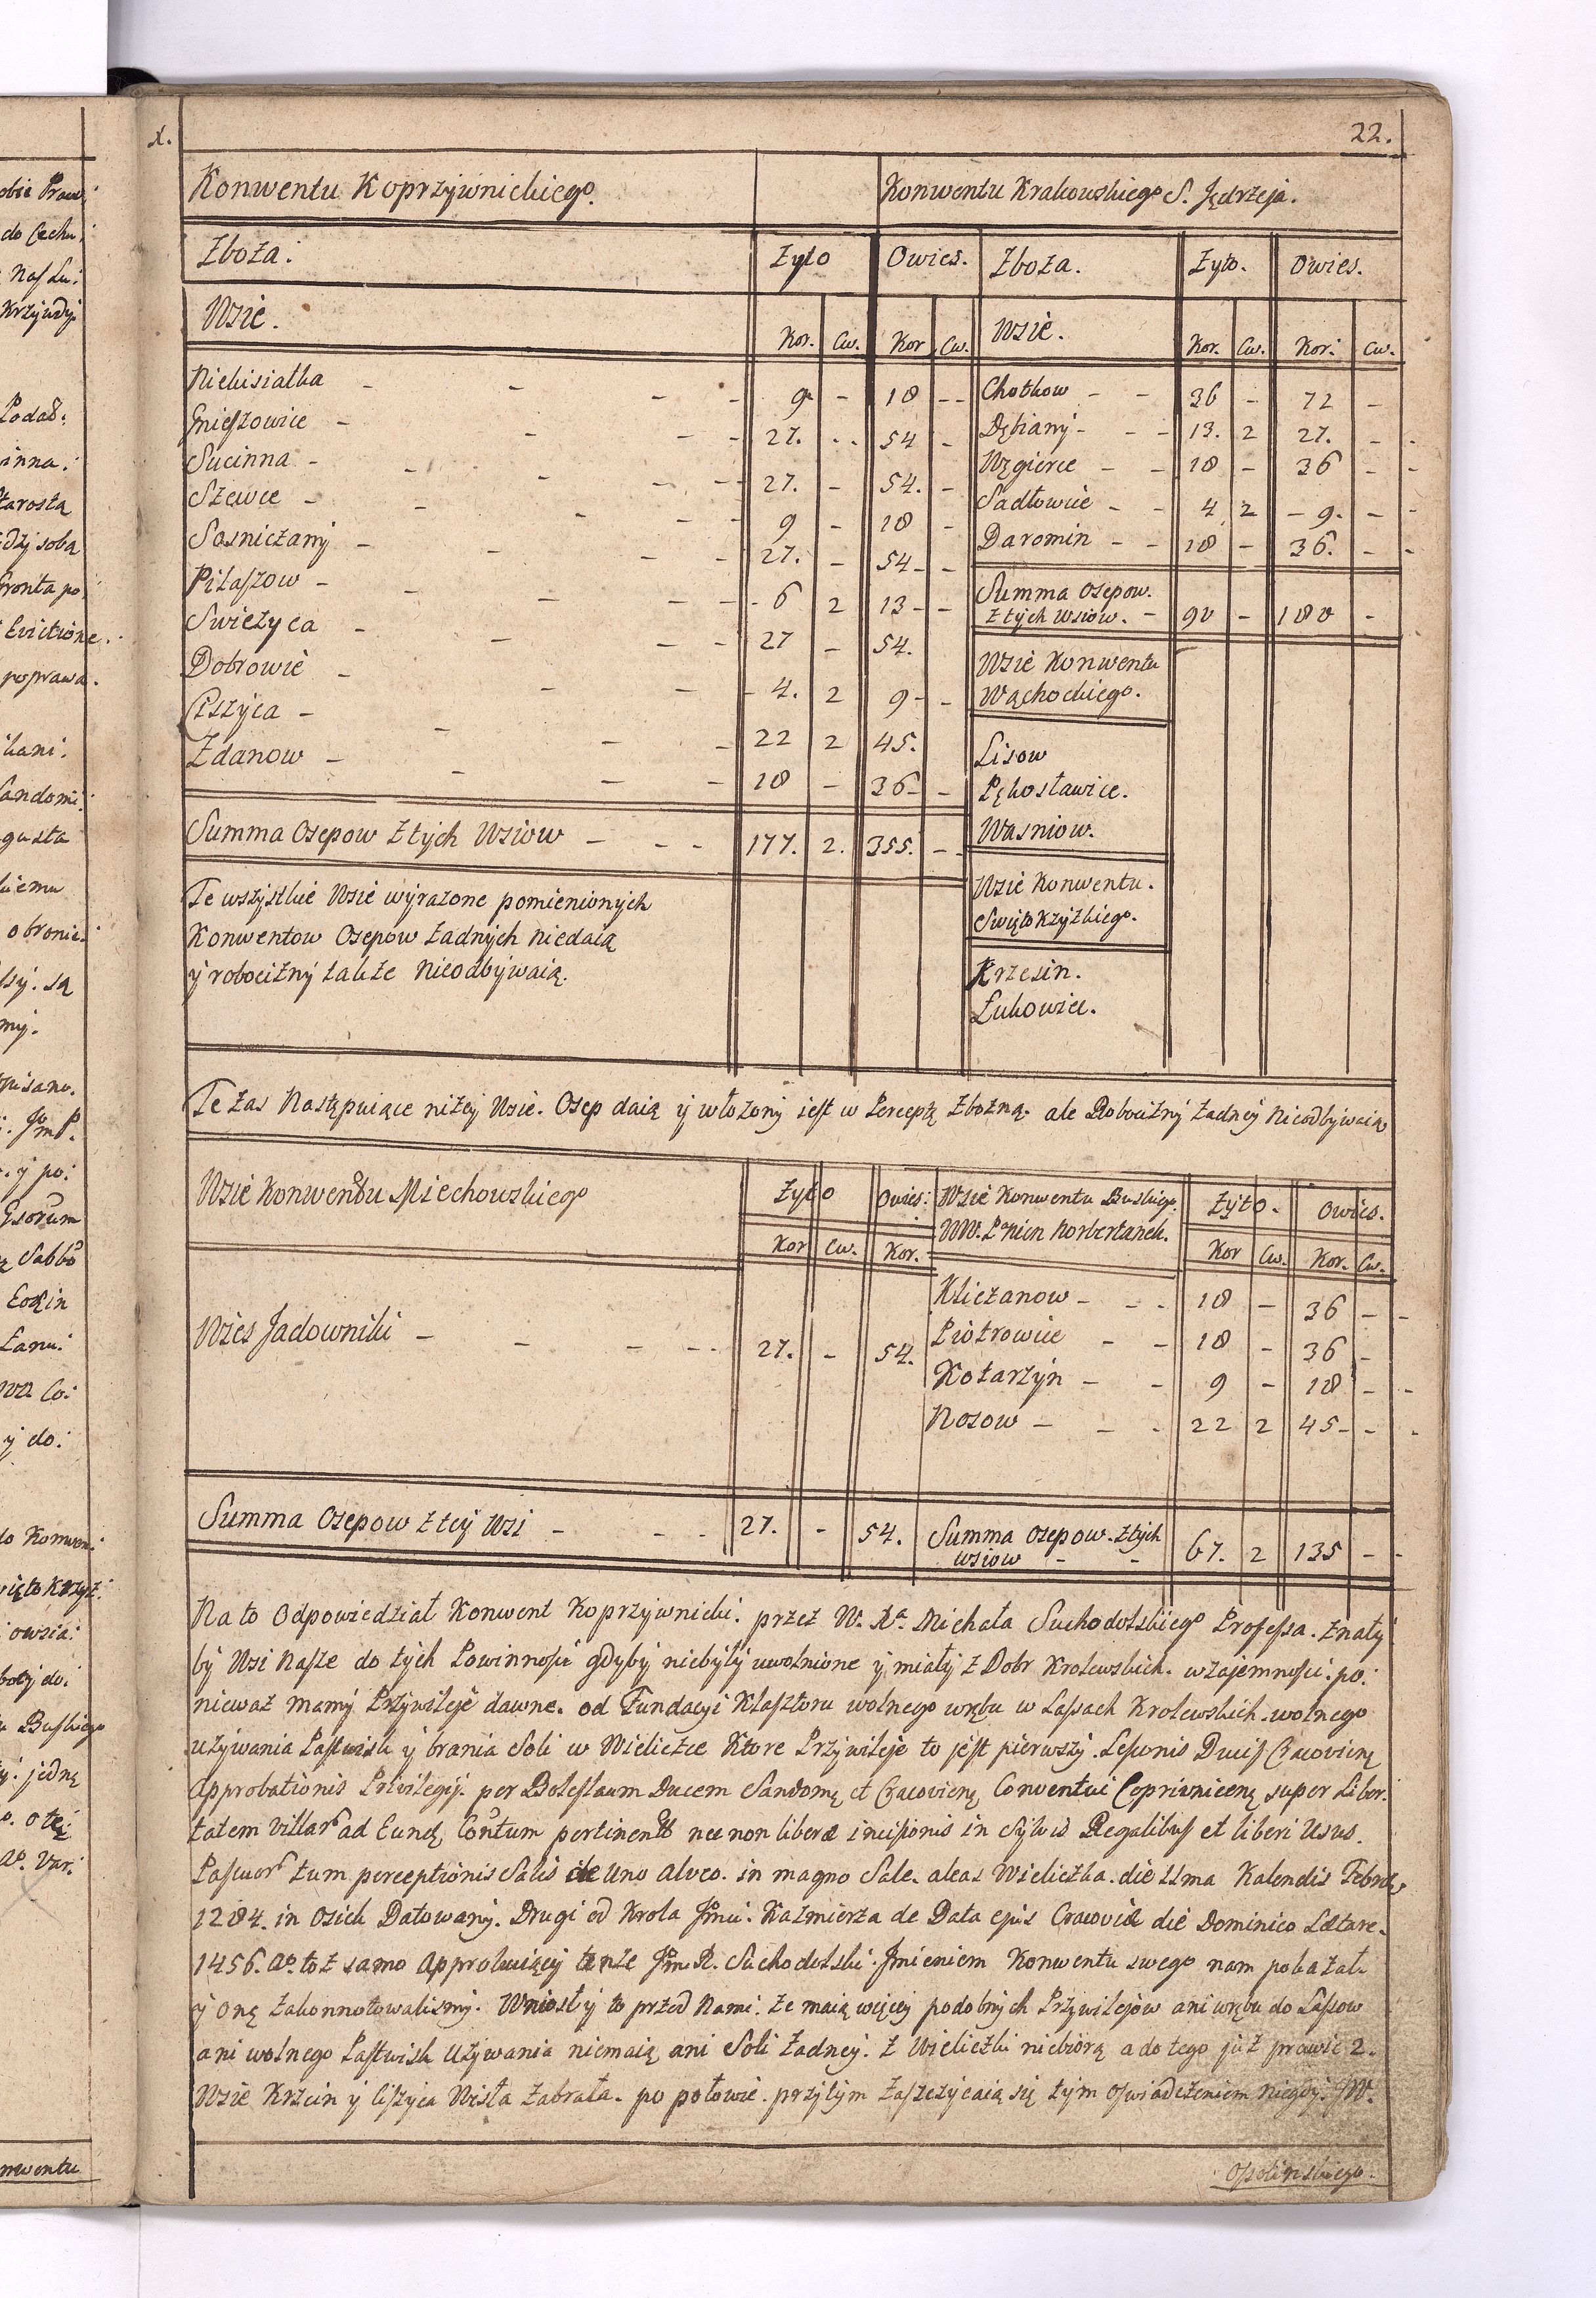 X.
22.
Konwentu Koprzywnickiego.
Konwentu Krakowskiego S. Jędrzeja.
Zboża. Zyto Owies. Zboża. Zyto. Owies.
Wsie. Kor. Cw. Kor Cw. Wsie. Kor. Cw. Kor. Cw.
Niekisiałka - - - - 9 - 18 - -
Gnieszowice - - - - 27. - - 54 -
Sucinna - - - - - 27. - 54. -
Szewce - - - - - 9 - 18 -
Sosniczany - - - - 27. - 54 - -
Piłaszow - - - - - 6 2 13 - -
Swieżyca - - - - 27 - 54.
Dobrowie - - - - 4. 2 9 - -
Ciszyca - - - - 22 2 45.
Zdanow - - - - 18 - 36 - -
Summa Osepow z tych Wsiow - - - 177. 2. 355. - -
Te wszystkie Wsie wyrażone pomienionych
Konwentow Osepow żadnych niedaią
y robocizny także nieodbywaią.
Chotkow - - 36 - 72 -
Dębiany - - - 13. 2 27. - -
Węgierce - - 18 - 36 - -
Sadłowice - - 4 2 - 9. - -
Daromin - - 18 - 36. - -
Summa Osepow.
z tych Wsiow. - 90 - 180 -
Wsie Konwentu
Wąchockiego.
Lisow
Pękosławice.
Wasniow.
Wsie Konwentu.
Swiętokrzyzkiego.
Krzesin.
Łukowice.
Te zas Następuiące niżey Wsie. Osep daią y włożony iest w Perceptę zbożną. ale Robocizny żadney Nieodbywaią
Wsie Konwentu Miechowskiego Zyto Owies:
Kor Cw. Kor.
Wies Jadowniki - - - - - 27. - 54.
Summa Osepow z tey Wsi - - - 27. - 54.
Wsie Konwentu Buskiego. Zyto. Owies.
WW. Pnien Norbertanek. Kor Cw. Kor. Cw.
Kliczanow - - - 18 - 36 - -
Piotrowice - - 18 - 36 -
Kotarzyn - - 9 - 18 - -
Nosow - - - 22 2 45 - - -
Summa Osepow. z tych
wsiow - - 67. 2 135 - -
Na to Odpowiedział Konwent Koprzywnicki. przez W. X. Michała Suchodolskiego Professa. znały
by Wsi Nasze do tych Powinnosci gdyby niebyły uwolnione y miały z Dobr Krolewskich. wzajemnosci. po:
nieważ mamy Przywileje dawne. od Fundacyi Klasztoru wolnego wrębu w Lassach Krolewskich. wolnego
używania Pastwisk y brania Soli w Wieliczce Ktore Przywileje to jest pierwszy. Lesconis Ducis Cracovienę
Approbationis Privilegij. per Boleslaum Ducem Sandomę et Cracovienę Conventui Coprivnicenę super Liber:
tatem villar ad Eundę Contum pertinent nec non liberæ incisionis in Sylvis Regalibus et liberi Usus.
Pascuor tum perceptionis Salis de Uno alveo. in magno Sale. aleas Wieliczka. die 11ma Kalendis Febru
1284. in Osiek Datowany. Drugi od Krola Jmci. Kazmierza de Data ejus Cracoviæ die Dominico Lætare.
1456. ao. toż samo Approbuiący tenże Jm. X. Suchodolski. Jmieniem Konwentu swego nam pokazał.
y onę zakonnotowalismy. Wniosł y to przed Nami. że maią więcey podobnych Przywilejow ani wrębu do Lassow
ani wolnego Pastwisk Używania niemaią ani Soli żadney. z Wieliczki niebiorą a do tego już prawie 2.
Wsie Krzcin y Ciszyca Wisła zabrała. po połowie. przytym zaszczycaią się tym oswiadczeniem niegdy. JW.
Ossolinskiego.